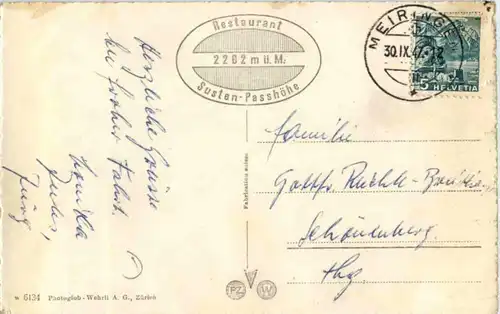 Restaurant
2262 m ü. M.
Susten-Passhöhe
MEIRINGEN
30.IX.47.-18
5 HELVETIA
Herzliche Grüsse
bei froher Fahrt
Familie
Gottfr.
Schönenberg
Thg.
Fabrication suisse
PZ W
W 6134 Photoglob-Wehrli A. G., Zürich